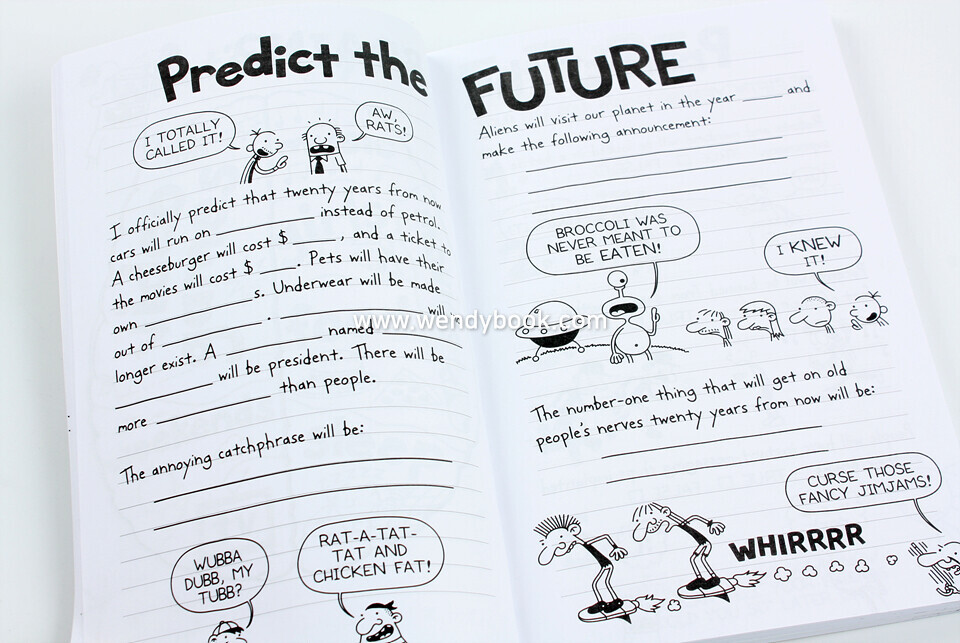 Predict the
I TOTALLY
CALLED IT!
AW,
RATS!
I officially predict that twenty years from now
cars will run on ____________ instead of petrol.
A cheeseburger will cost $ _____, and a ticket to
the movies will cost $ ____. Pets will have their
own ____________s. Underwear will be made
out of ____________. ____________ will
longer exist. A ____________ named ____________
____________ will be president. There will be
more ____________ than people.
The annoying catchphrase will be:
WUBBA
DUBB, MY
TUBB?
RAT-A-TAT-
TAT AND
CHICKEN FAT!
FUTURE
Aliens will visit our planet in the year _____ and
make the following announcement:
BROCCOLI WAS
NEVER MEANT TO
BE EATEN!
I KNEW
IT!
www.wendybook.com
The number-one thing that will get on old
people's nerves twenty years from now will be:
CURSE THOSE
FANCY JIMJAMS!
WHIRRRR